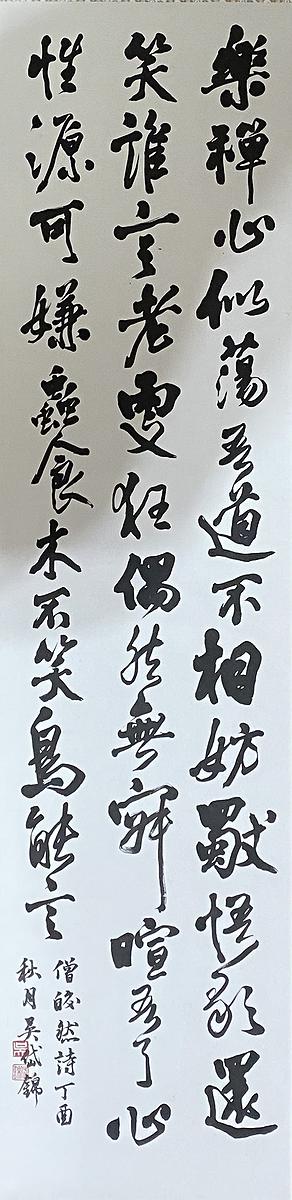 樂禪心似蕩吾道不相妨獨悟歌還
笑誰言老更狂偶然無寂暄吾了心
性源可嫌蟲食木不笑鳥能言
僧皎然詩丁酉
秋月吳岱錦